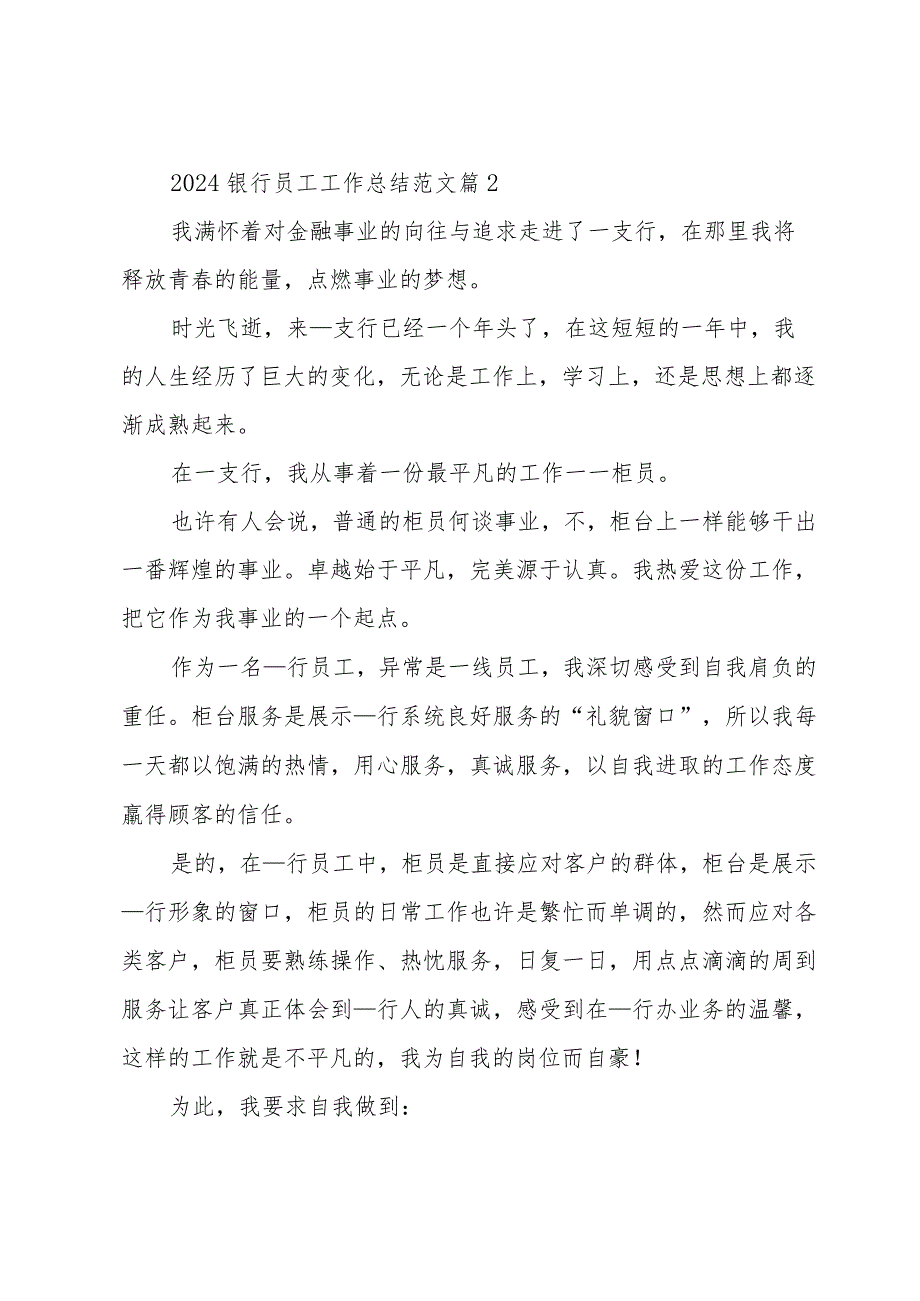 2024银行员工工作总结范文篇2
我满怀着对金融事业的向往与追求走进了一支行，在那里我将
释放青春的能量，点燃事业的梦想。
时光飞逝，来—支行已经一个年头了，在这短短的一年中，我
的人生经历了巨大的变化，无论是工作上，学习上，还是思想上都逐
渐成熟起来。
在一支行，我从事着一份最平凡的工作一一柜员。
也许有人会说，普通的柜员何谈事业，不，柜台上一样能够干出
一番辉煌的事业。卓越始于平凡，完美源于认真。我热爱这份工作，
把它作为我事业的一个起点。
作为一名—行员工，异常是一线员工，我深切感受到自我肩负的
重任。柜台服务是展示—行系统良好服务的“礼貌窗口”，所以我每
一天都以饱满的热情，用心服务，真诚服务，以自我进取的工作态度
赢得顾客的信任。
是的，在—行员工中，柜员是直接应对客户的群体，柜台是展示
—行形象的窗口，柜员的日常工作也许是繁忙而单调的，然而应对各
类客户，柜员要熟练操作、热忱服务，日复一日，用点点滴滴的周到
服务让客户真正体会到—行人的真诚，感受到在—行办业务的温馨，
这样的工作就是不平凡的，我为自我的岗位而自豪！
为此，我要求自我做到：